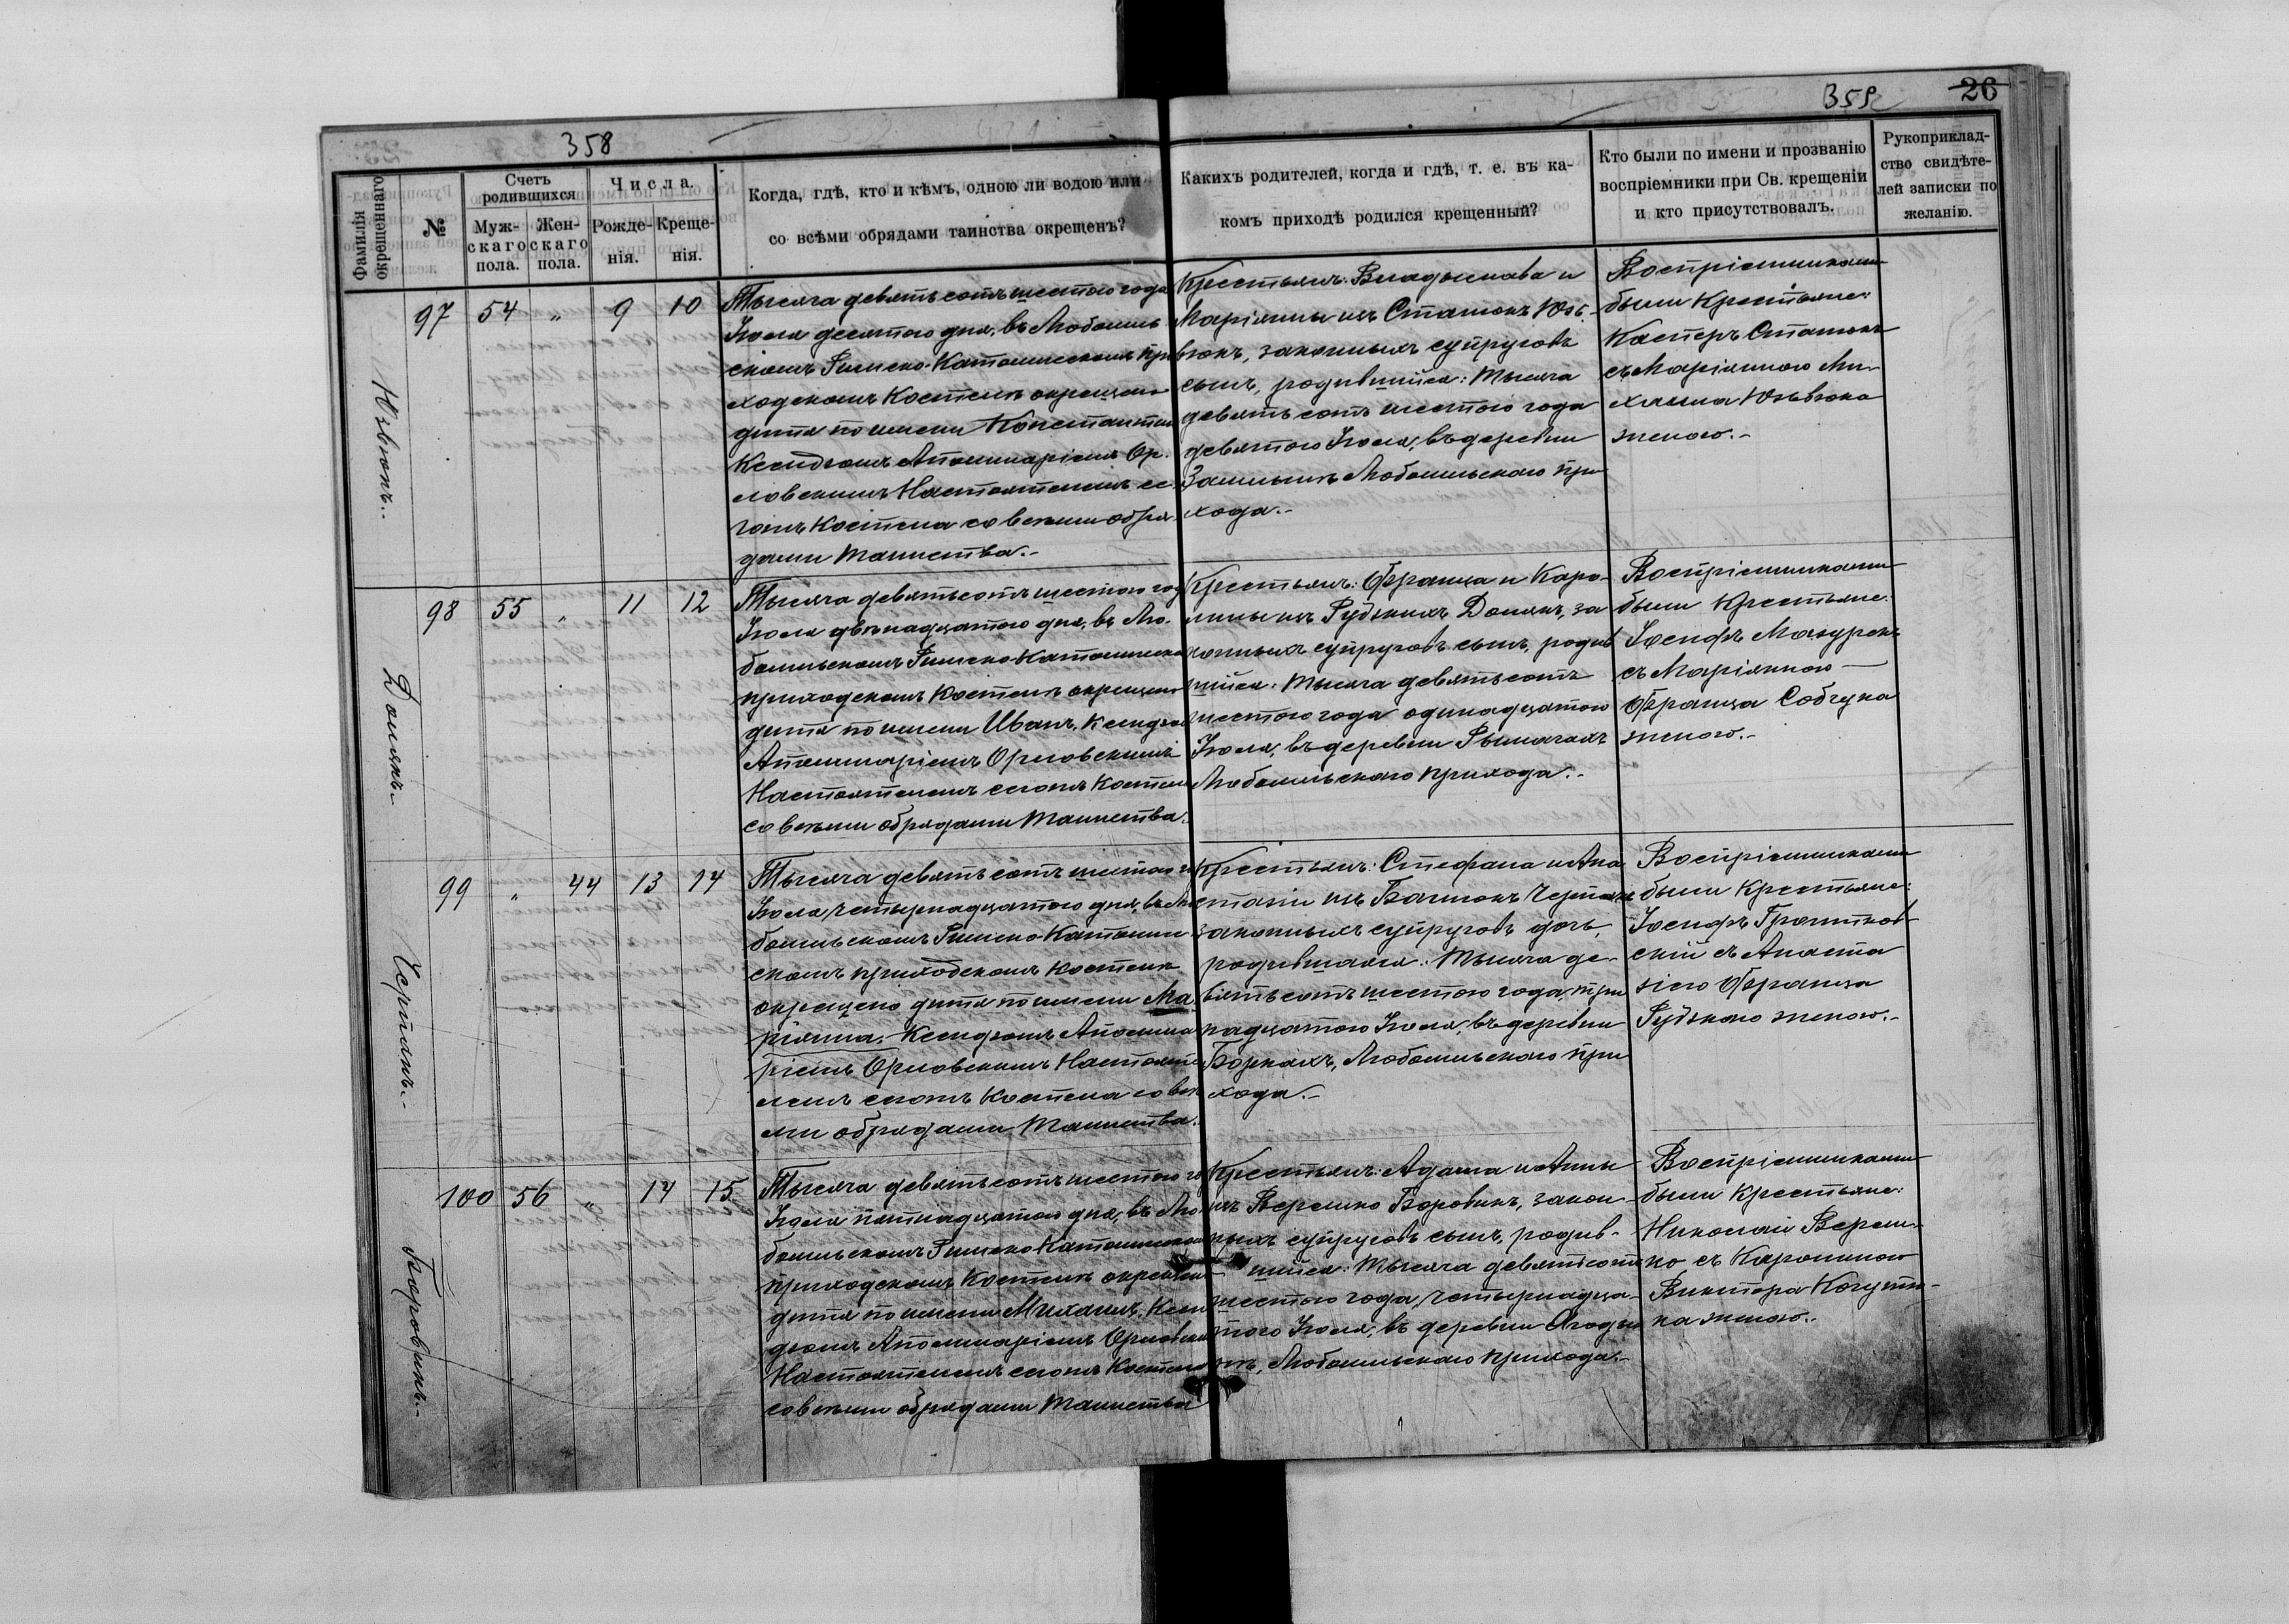 358
359
26
Фамилія окрещеннаго
№
Счетъ родившихся
Муж-
скаго
пола.
Жен-
скаго
пола.
Числа.
Рожде-
нія.
Креще-
нія.
Когда, гдѣ, кто и кѣмъ, одною ли водою или
со всѣми обрядами таинства окрещенъ?
Какихъ родителей, когда и гдѣ, т. е. въ ка-
комъ приходѣ родился крещенный?
Кто были по имени и прозванію
воспріемники при Св. крещеніи
и кто присутствовалъ.
Рукоприклад-
ство свидѣте-
лей записки по
желанію.
97 54 „ 9 10
Тысяча девятьсотъ шестого года
Іюля десятого дня, въ Любомль
скомъ Римско-Католическомъ при
ходскомъ Костелѣ окрещено
дитя по имени Константин
Ксендзомъ Аполинаріемъ Ор-
ловскимъ Настоятелемъ се-
гожъ Костела со всѣми обря-
дами Таинства.-
Крестьянъ: Владыслава и
Маріянны изъ Сташокъ
законныхъ супруговъ
сынъ, родившійся: Тысяча
девятьсотъ шестого года
девятого Іюля, въ деревни
Любомльского при
хода.-
Воспріемниками
были Крестьяне:
Касперъ Сташокъ
съ Маріянною Ми-
хаила
женою.-
98 55 „ 11 12
Домякъ.-
Тысяча девятьсотъ шестого год
Іюля двѣнадцатого дня, въ Лю-
бомльскомъ Римско-Католическо
приходскомъ Костелѣ окрещено
дитя по имени Иванъ, Ксендзом
Аполинаріемъ Орловскимъ
Настоятелемъ сегожъ Костела
со всѣми обрядами Таинства.
Крестьянъ: Франца и Каро-
лины изъ Рудскихъ Домякъ, за
конныхъ супруговъ сынъ, родив
шійся: Тысяча девятьсотъ
шестого года одинадцатого
Іюля, въ деревни Рымачахъ
Любомльского прихода.-
Воспріемниками
были Крестьяне:
Іосифъ Мазурекъ
съ Маріянною
Франца Собчука
женою.-
99 „ 44 13 14
Черпакъ.-
Тысяча девятьсотъ шестого г
Іюля четырнадцатого дня, въ Лю
бомльскомъ Римско-Католиче-
скомъ приходскомъ Костелѣ
окрещено дитя по имени Ма
ріянна, Ксендзомъ Аполина
ріемъ Орловскимъ Настояте
лемъ сегожъ Костела со всѣ
ми обрядами Таинства.
Крестьянъ: Стефана и Ана
стазіи изъ Черпакъ
законныхъ супруговъ дочь,
родившаяся: Тысяча де-
вятьсотъ шестого года, три
надцатого Іюля, въ деревни
Боркахъ, Любомльского при
хода.-
Воспріемниками
были Крестьяне:
Іосифъ
скій съ Анаста
зіею Франца
Рудского женою.-
100 56 „ 14 15
Боровикъ.-
Тысяча девятьсотъ шестого го
Іюля пятнадцатого дня, въ Лю
бомльскомъ Римско-Католическом
приходскомъ Костелѣ окрещено
дитя по имени Михаилъ, Ксен
дзомъ Аполинаріемъ Орловским
Настоятелемъ сегожъ Костела
со всѣми обрядами Таинства
Крестьянъ: Адама и Анны
изъ Верешко Боровикъ, закон
ныхъ супруговъ сынъ, родив-
шійся: Тысяча девятьсотъ
шестого года, четырнадца-
того Іюля, въ деревни
Любомльского прихода.-
Воспріемниками
были Крестьяне:
Николай Вереш-
ко съ Каролиною
Виктора
женою.-